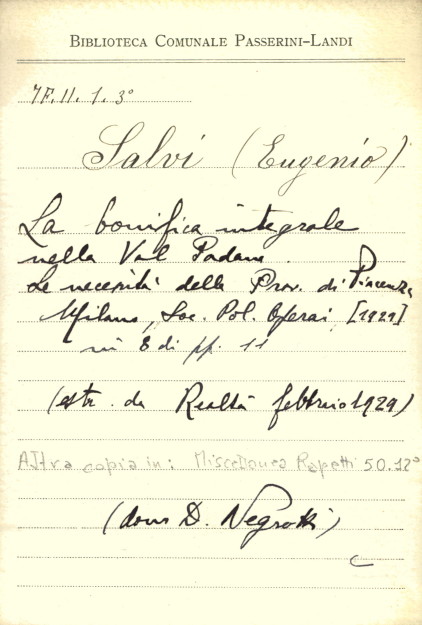 BIBLIOTECA COMUNALE PASSERINI-LANDI
7F.II.1.3°
Salvi (Eugenio)
La bonifica integrale
nella Val Padana.
Le necessità della Prov. di Piacenza
Milano, Soc. Pol. Operai, [1929]
in 8 di pp. 11
(estr. da Realtà febbraio 1929)
Altra copia in: Miscellanea Rapetti 50.12°
(dono D. Negrotti)
C